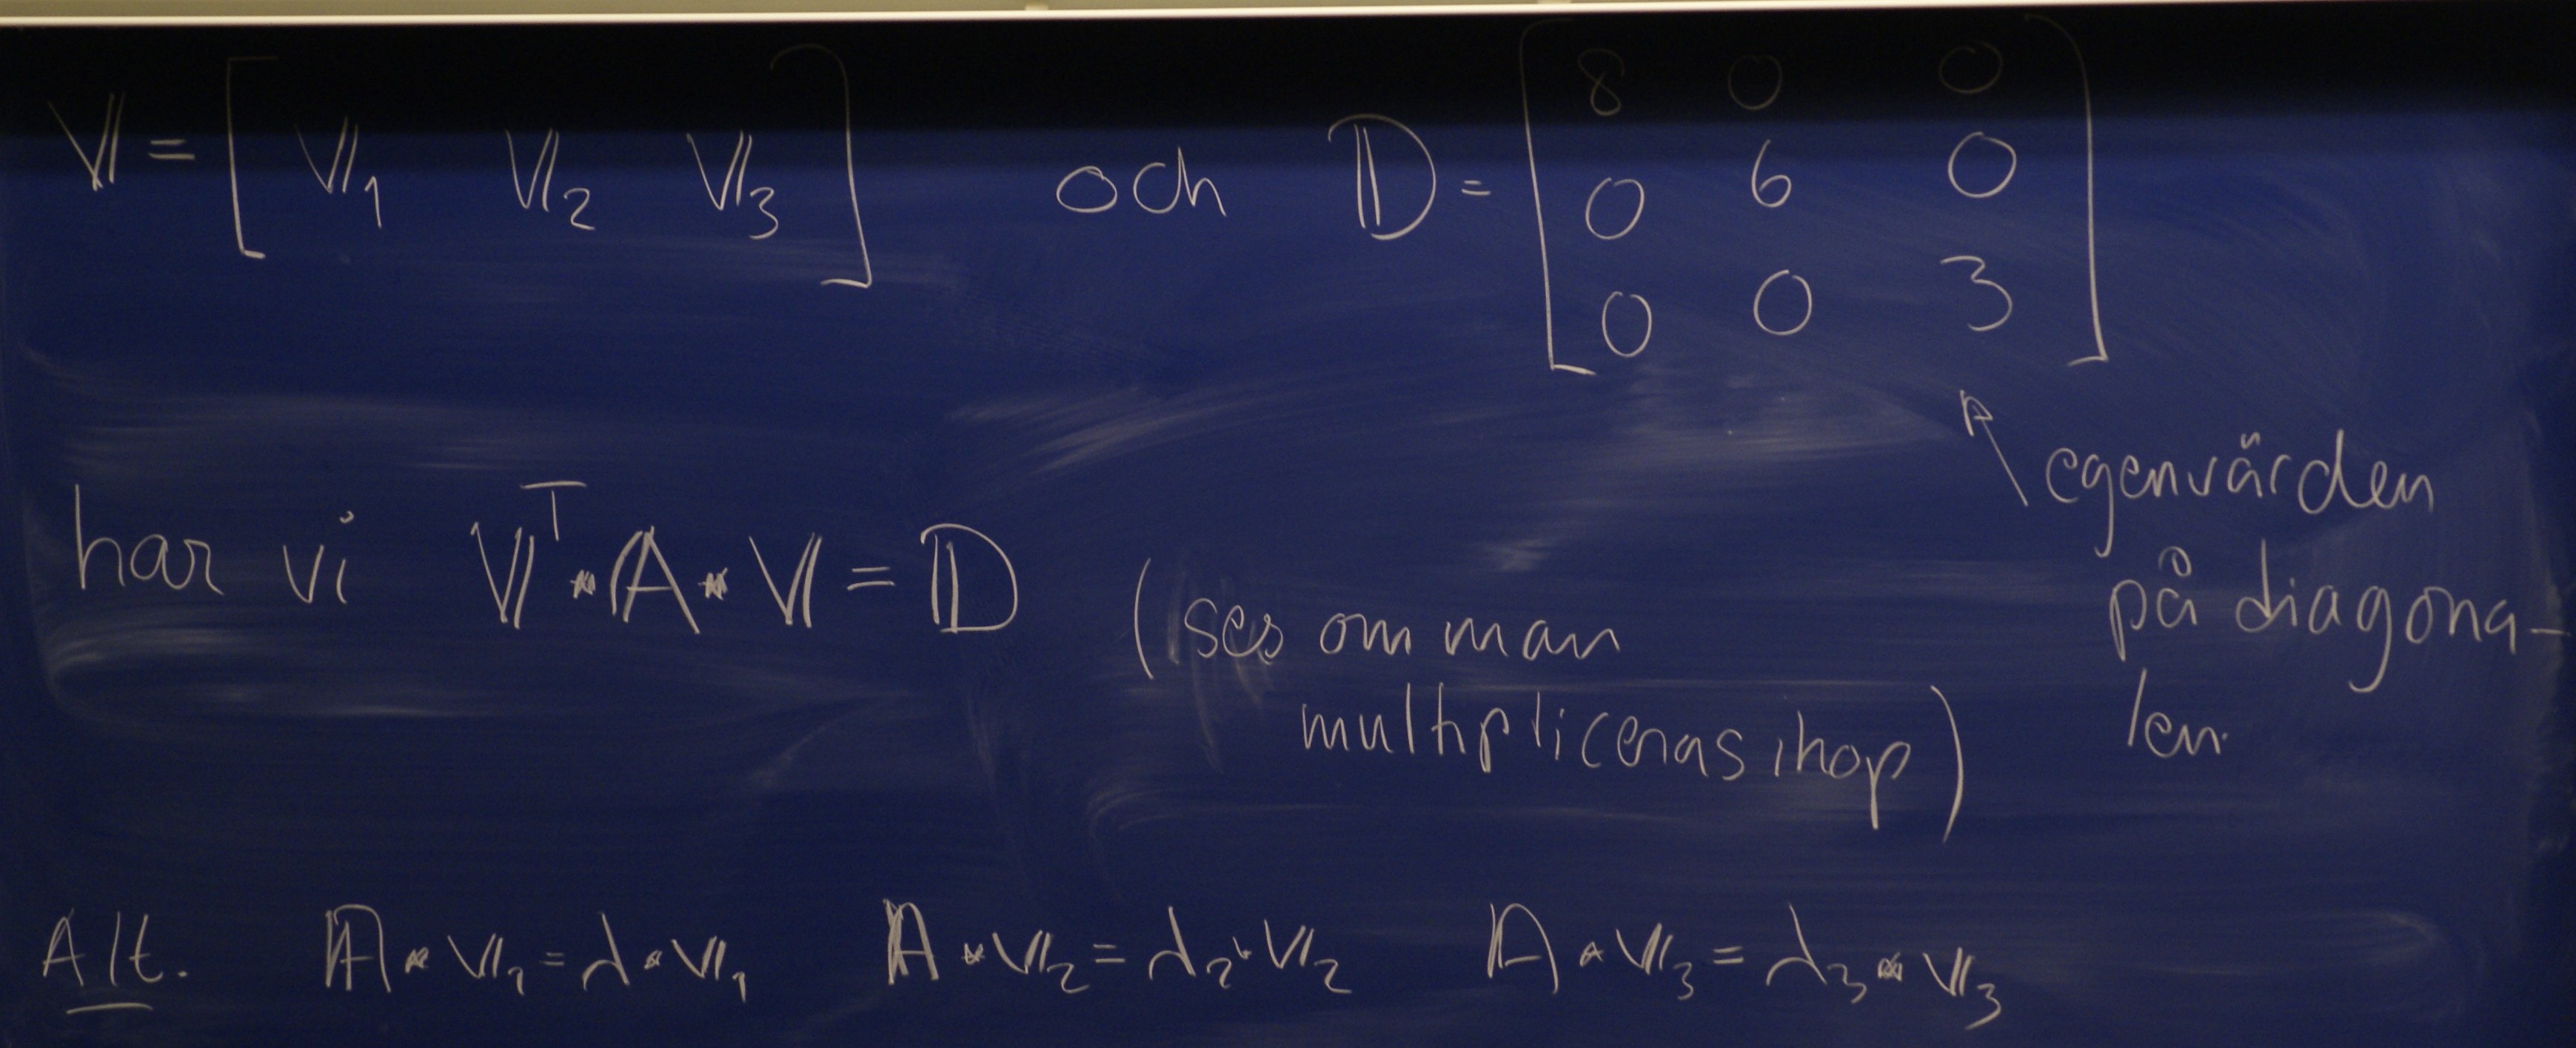 V = [ V₁ V₂ V₃ ] och D = [ 8 0 0
0 6 0
0 0 3 ]
egenvärden
på diagona-
len.
har vi Vᵀ * A * V = D
(ses om man
multipliceras ihop)
Alt. A * V₁ = λ * V₁ A * V₂ = λ₂ * V₂ A * V₃ = λ₃ * V₃